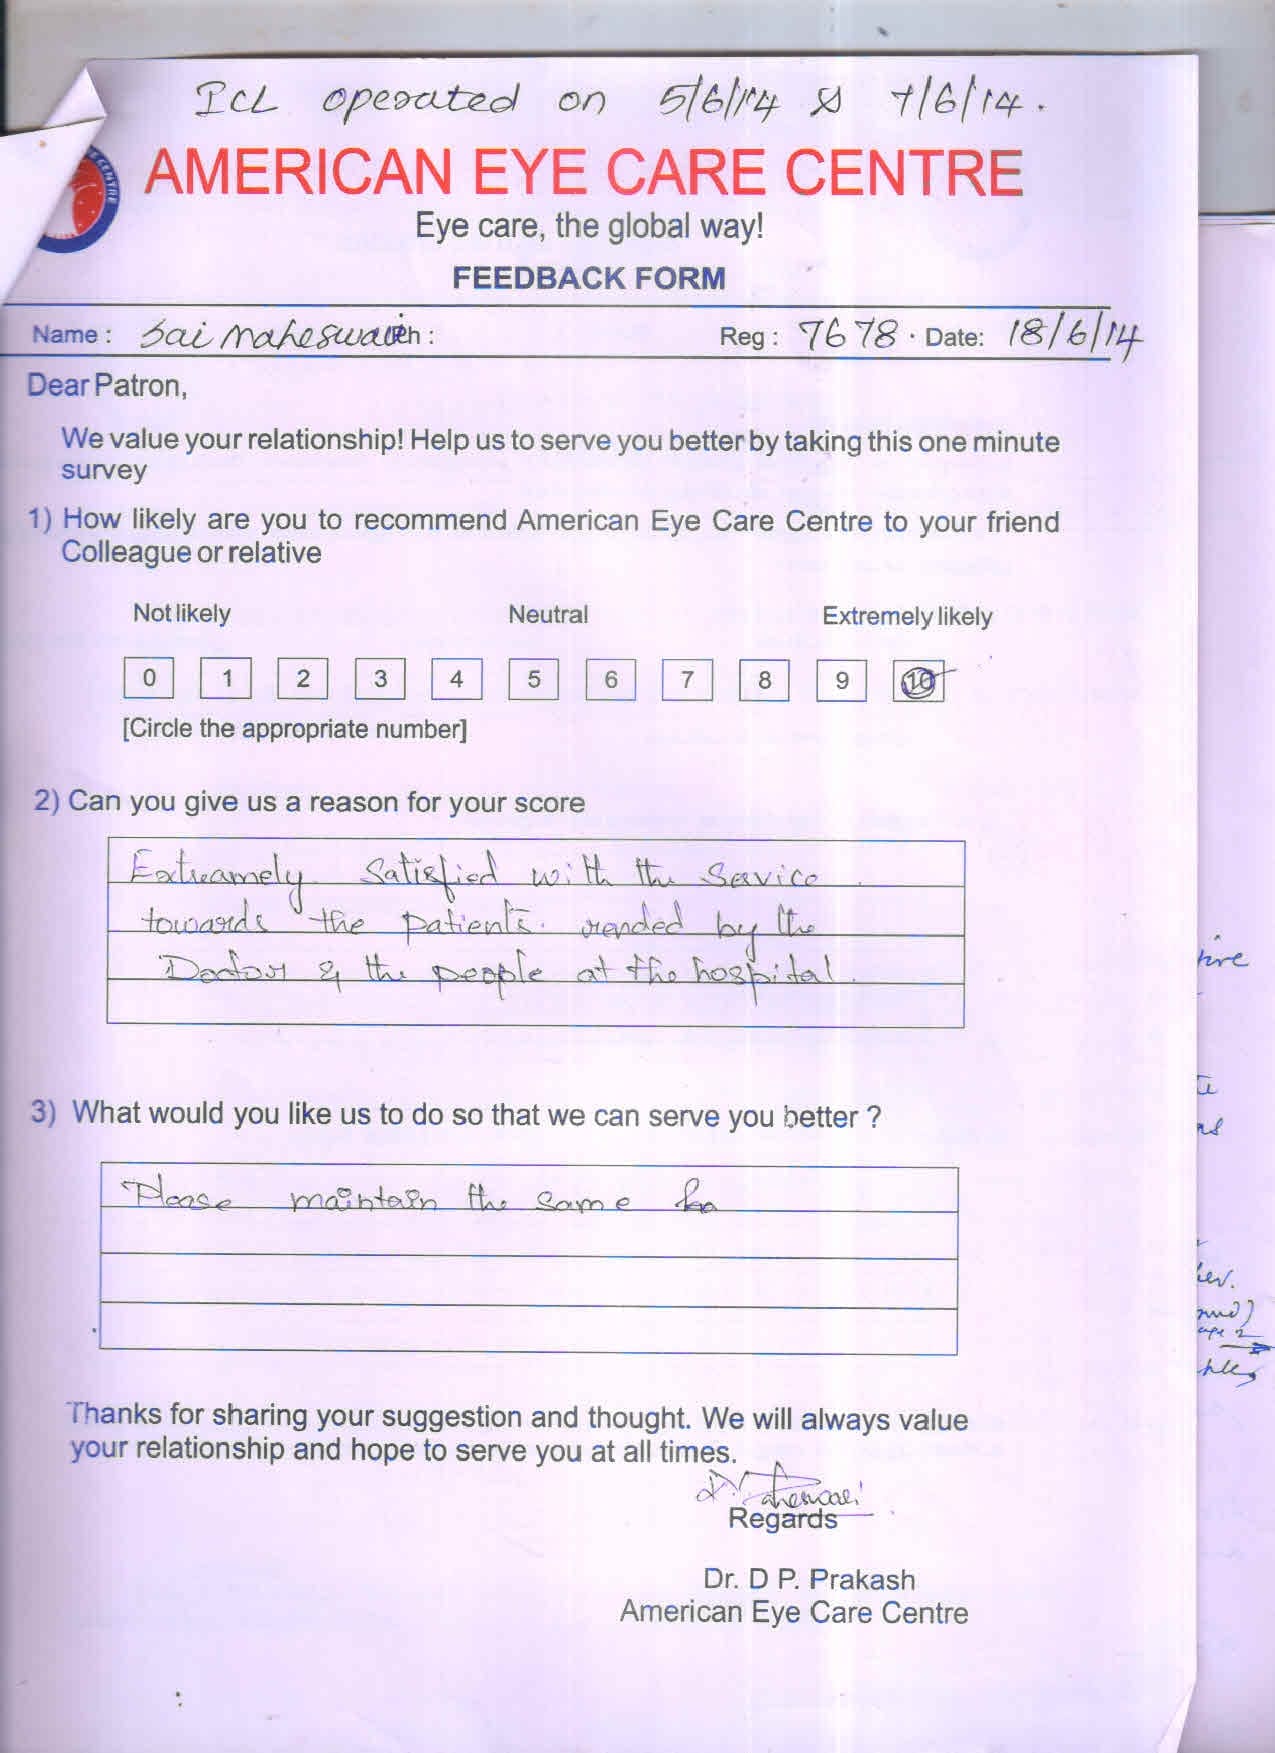 ICL operated on 5/6/14 & 7/6/14.
CENTRE
AMERICAN EYE CARE CENTRE
Eye care, the global way!
FEEDBACK FORM
Name : Sai Maheswari Ph : Reg : 7678 . Date: 18/6/14
Dear Patron,
We value your relationship! Help us to serve you better by taking this one minute
survey
1) How likely are you to recommend American Eye Care Centre to your friend
Colleague or relative
Not likely Neutral Extremely likely
0 1 2 3 4 5 6 7 8 9 10
[Circle the appropriate number]
2) Can you give us a reason for your score
Extreamely Satisfied with the Service
towards the patients. rended by the
Doctor & the people at the hospital.
3) What would you like us to do so that we can serve you better ?
Please maintain the same
Thanks for sharing your suggestion and thought. We will always value
your relationship and hope to serve you at all times.
Regards
Dr. D P. Prakash
American Eye Care Centre